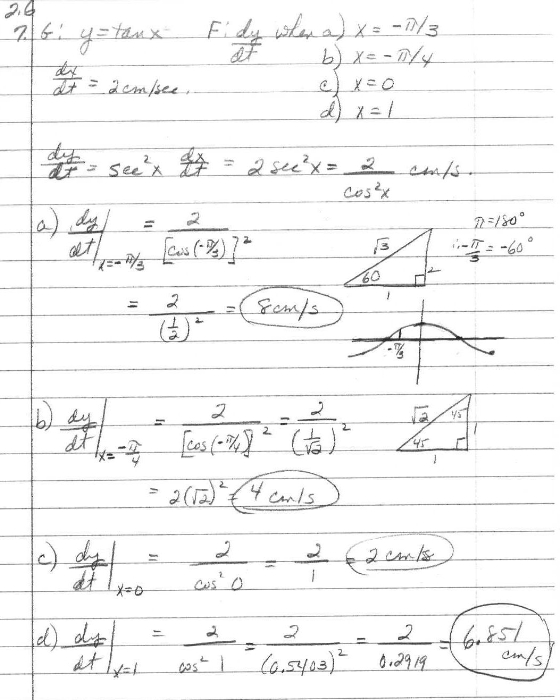 2.6
7. G: y = tan x    F: dy/dt when a) x = -π/3
b) x = -π/4
dx/dt = 2 cm/sec.    c) x = 0
d) x = 1
dy/dt = sec²x dx/dt = 2 sec²x = 2/cos²x cm/s.
a) dy/dt |x=-π/3 = 2/[cos(-π/3)]²    √3    60    2    1    π = 180°
∴ -π/3 = -60°
= 2/(1/2)² = 8 cm/s
-π/3
b) dy/dt |x=-π/4 = 2/[cos(-π/4)]² = 2/(1/√2)²    √2    45    45    1    1
= 2(√2)² = 4 cm/s
c) dy/dt |x=0 = 2/cos² 0 = 2/1 = 2 cm/s
d) dy/dt |x=1 = 2/cos² 1 = 2/(0.5403)² = 2/0.2919 = 6.851 cm/s